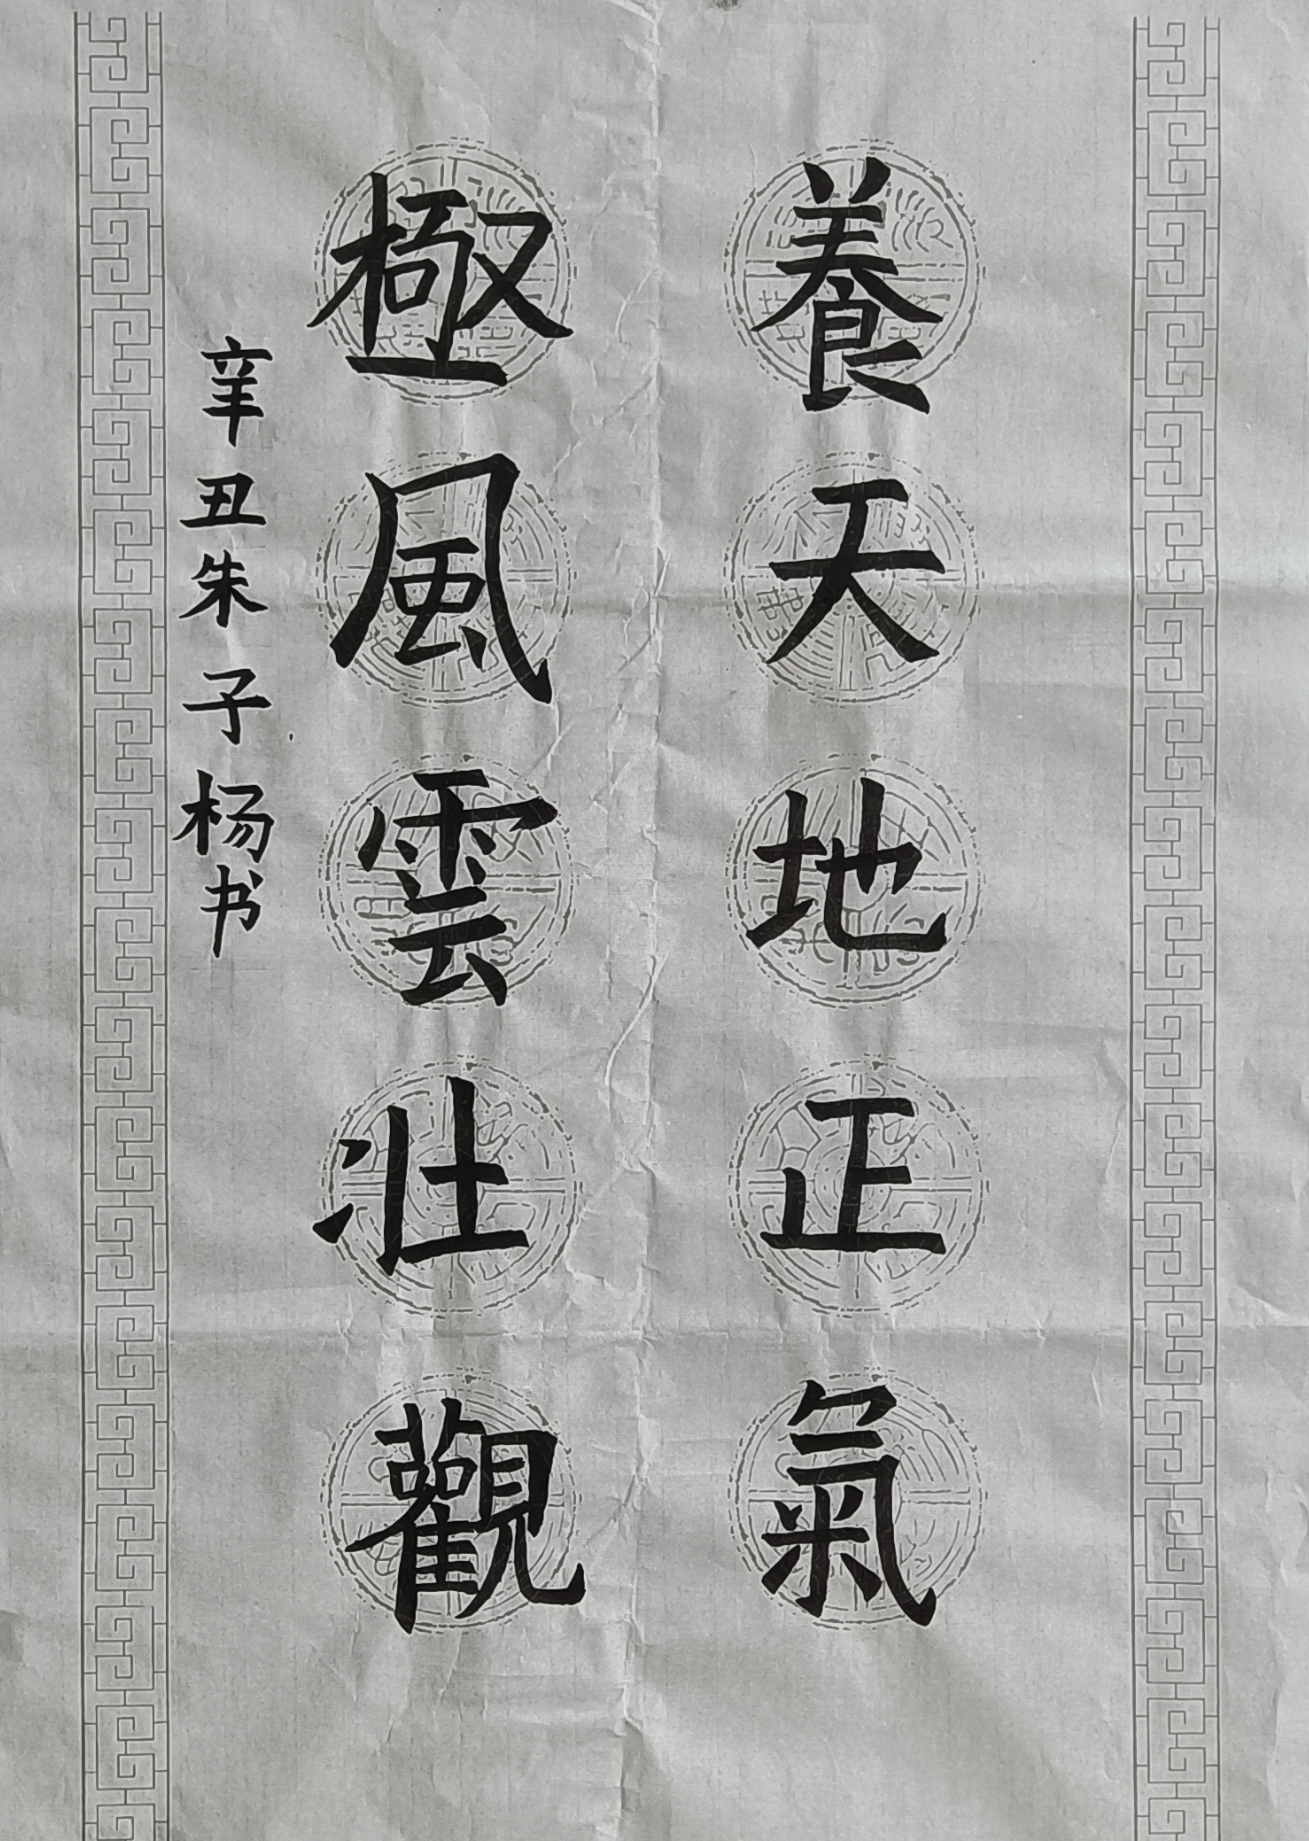 養天地正氣
極風雲壯觀
辛丑朱子杨书